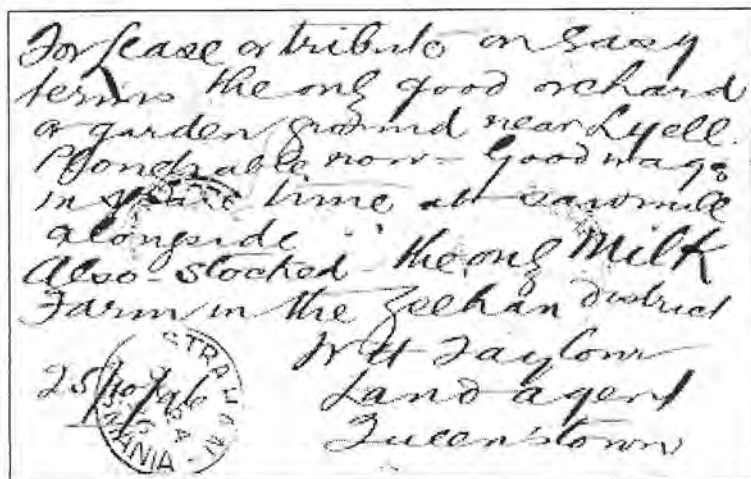 For lease or tribute on easy
terms the only good orchard
or garden ground near Lyell.
now - Good wage
in spare time at sawmill
alongside
Also - Stocked - the only Milk
Farm in the Zeehan District
W H Taylour
25/10/96
Land agent
Queenstown
STRAHAN
MANIA